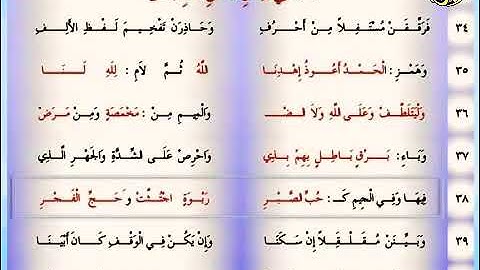 ٣٤ فَرَقِّقَنْ مُسْتَفِلاً مِنْ أَحْرُفِ وَحَاذِرَنْ تَفْخِيمَ لَفْظِ الأَلِفِ
٣٥ وَهَمْزِ : الْحَمْدُ أَعُوذُ إِهْدِنَا اللَّهُ ثُمَّ لاَمِ : لِلَّهِ لَنَا
٣٦ وَلْيَتَلَطَّفْ وَعَلَى اللَّهِ وَلاَ الضَّـ وَالْمِيمِ مِنْ : مَخْمَصَةٍ وَمِنْ مَرَضْ
٣٧ وَبَاءِ : بَرْقٍ بَاطِلٍ بِهِمْ بِذِي وَاحْرِصْ عَلَى الشِّدَّةِ وَالجَهْرِ الَّذِي
٣٨ فِيهَا وَفِي الْجِيمِ كَـ : حُبِّ الصَّبْرِ رَبْوَةٍ اجْتُثَّتْ وَحَجِّ الْفَجْرِ
٣٩ وَبَيِّنَنْ مُقَلْقَلاً إِنْ سَكَنَا وَإِنْ يَكُنْ فِي الْوَقْفِ كَانَ أَبْيَنَا